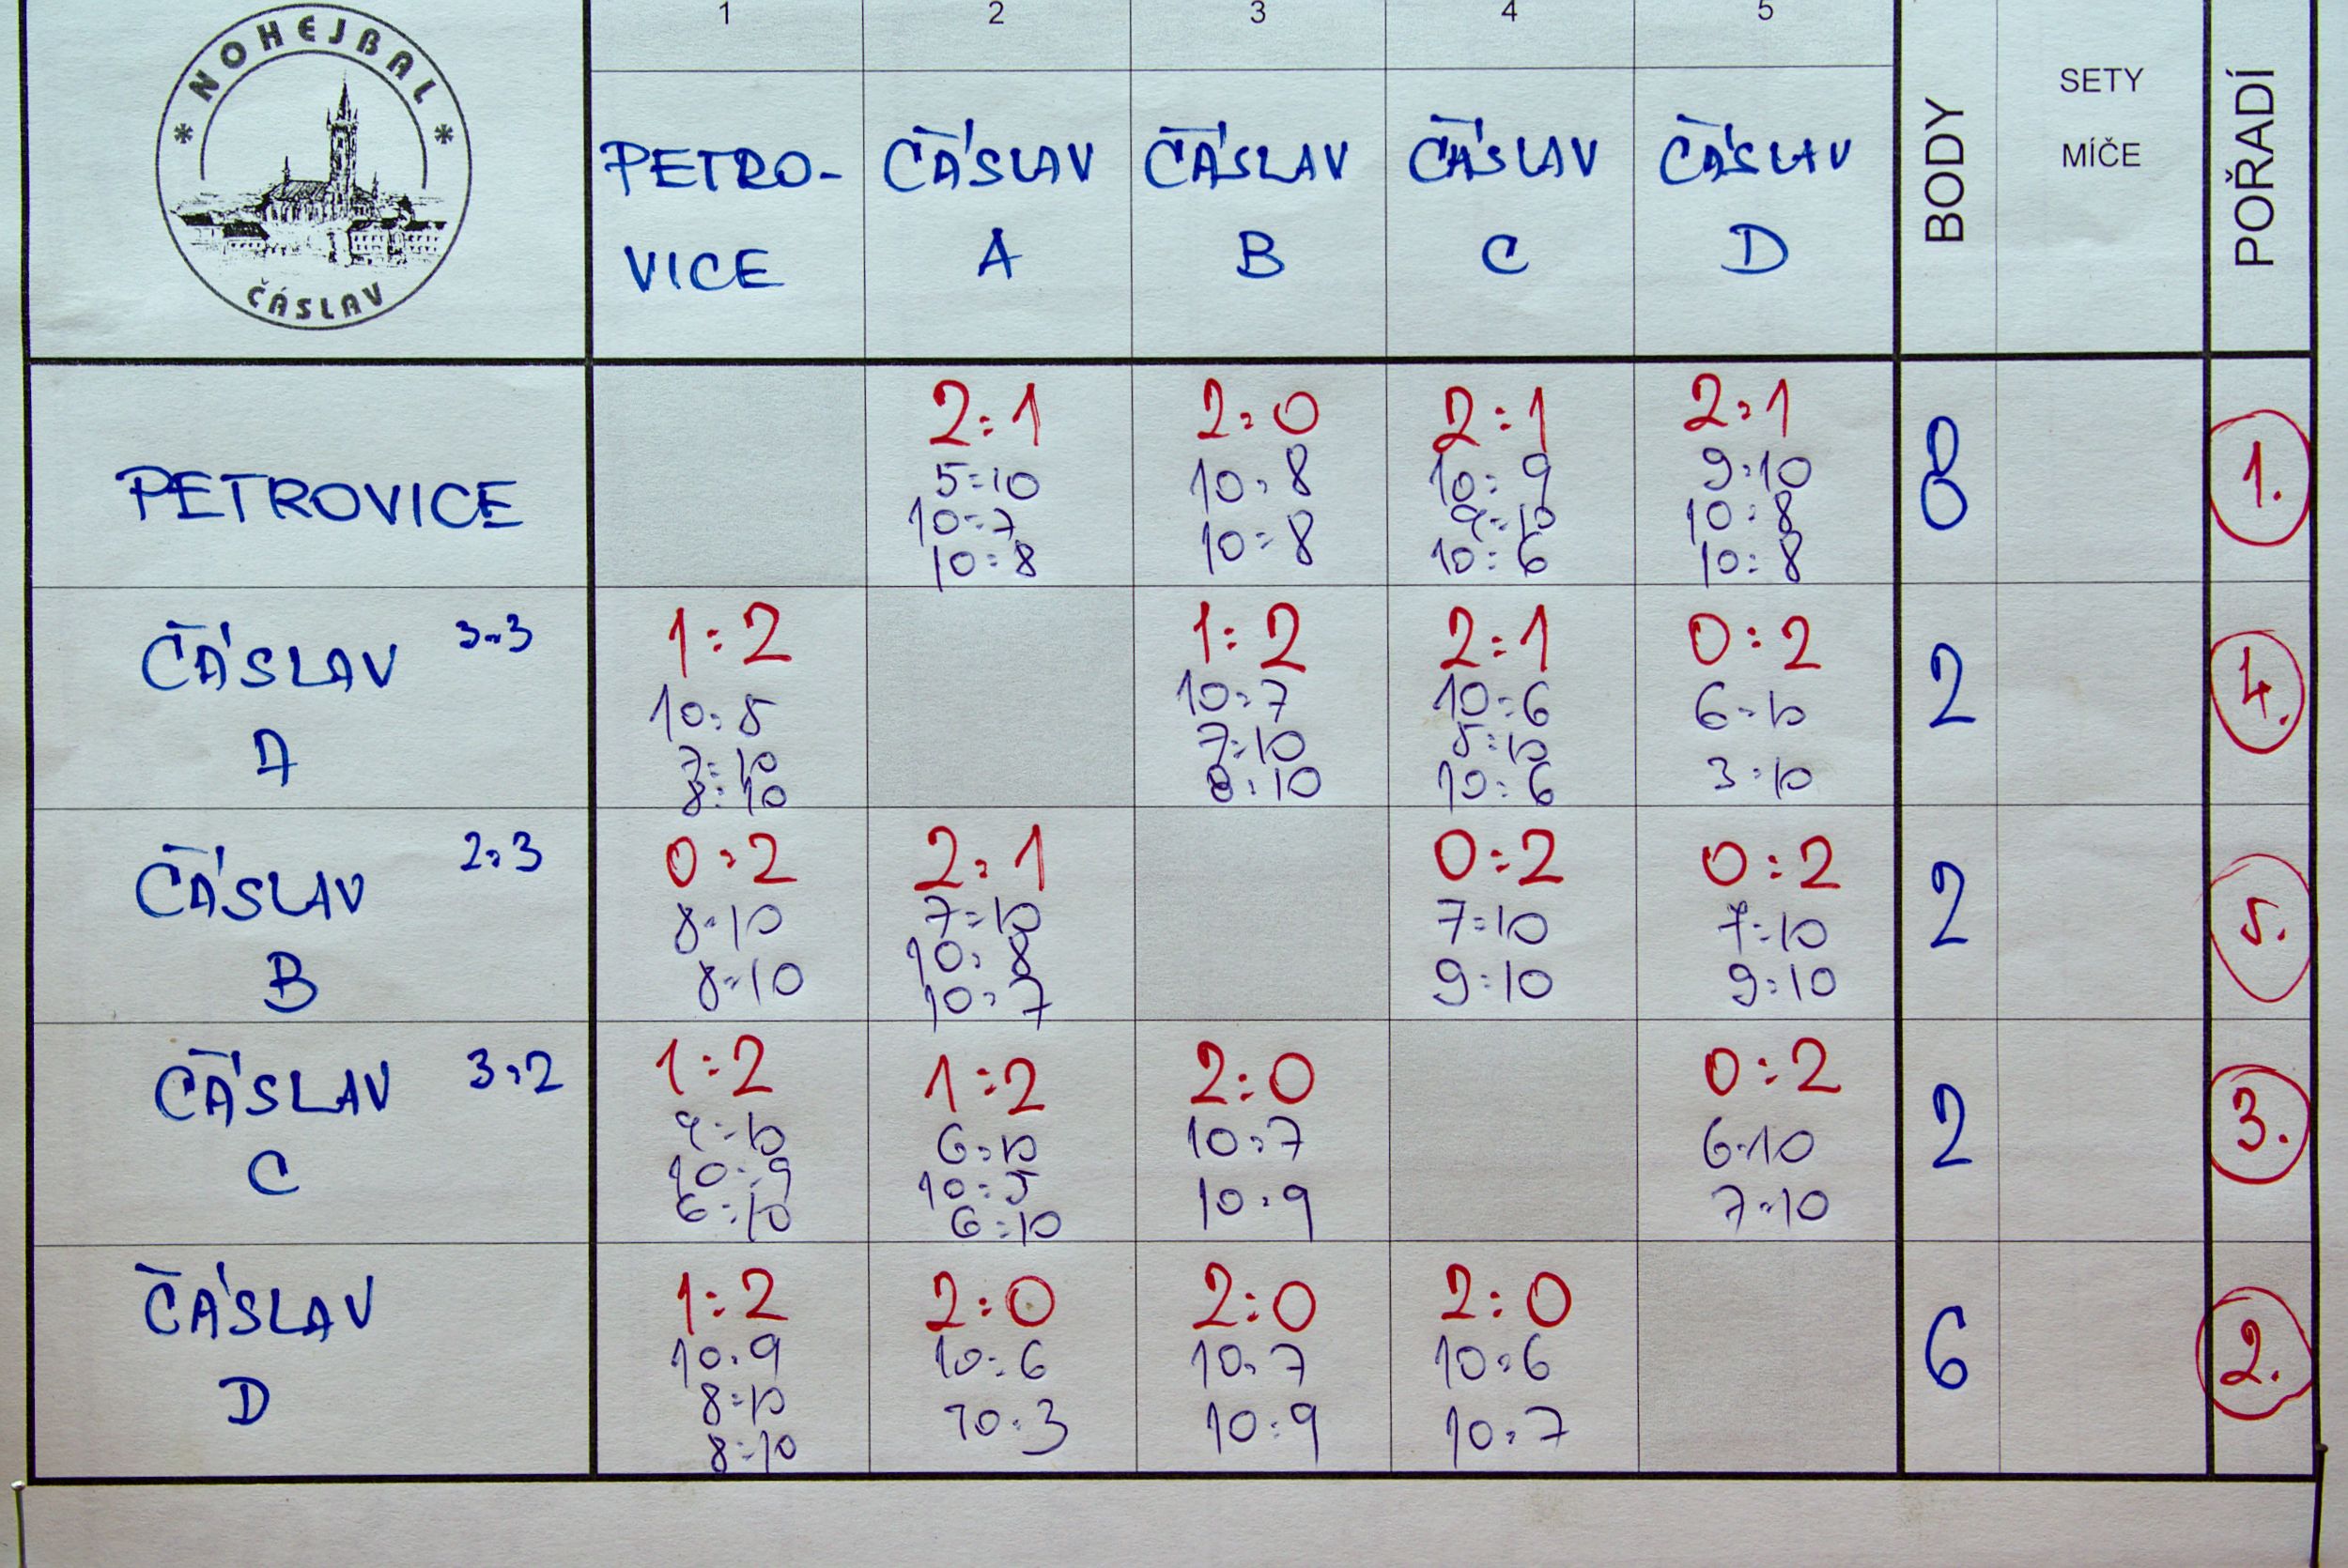 * NOHEJBAL *
ČÁSLAV
1 2 3 4 5
PETRO-
VICE
ČÁSLAV
A
ČÁSLAV
B
ČÁSLAV
C
ČÁSLAV
D
BODY
SETY
MÍČE
POŘADÍ
PETROVICE
2:1
5:10
10:7
10:8
2:0
10:8
10:8
2:1
10:9
9:10
10:6
2:1
9:10
10:8
10:8
8
1.
ČÁSLAV 3:3
A
1:2
10:5
7:10
8:10
1:2
10:7
7:10
8:10
2:1
10:6
5:10
10:6
0:2
6:10
3:10
2
4.
ČÁSLAV 2:3
B
0:2
8:10
8:10
2:1
7:10
10:8
10:7
0:2
7:10
9:10
0:2
7:10
9:10
2
5.
ČÁSLAV 3:2
C
1:2
9:10
10:9
6:10
1:2
6:10
10:5
6:10
2:0
10:7
10:9
0:2
6:10
7:10
2
3.
ČÁSLAV
D
1:2
10:9
8:10
8:10
2:0
10:6
10:3
2:0
10:7
10:9
2:0
10:6
10:7
6
2.